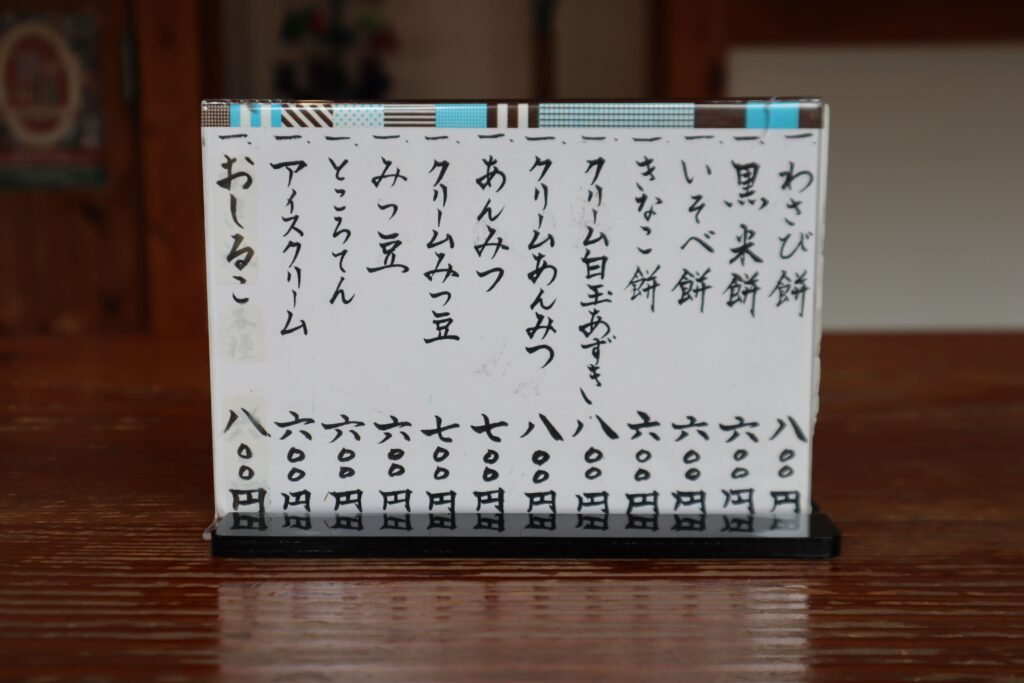 一、わさび餅 八〇〇円
一、黒米餅 六〇〇円
一、いそべ餅 六〇〇円
一、きなこ餅 六〇〇円
一、クリーム白玉あずき 八〇〇円
一、クリームあんみつ 八〇〇円
一、あんみつ 七〇〇円
一、クリームみつ豆 七〇〇円
一、みつ豆 六〇〇円
一、ところてん 六〇〇円
一、アイスクリーム 六〇〇円
一、おしるこ 各種 八〇〇円